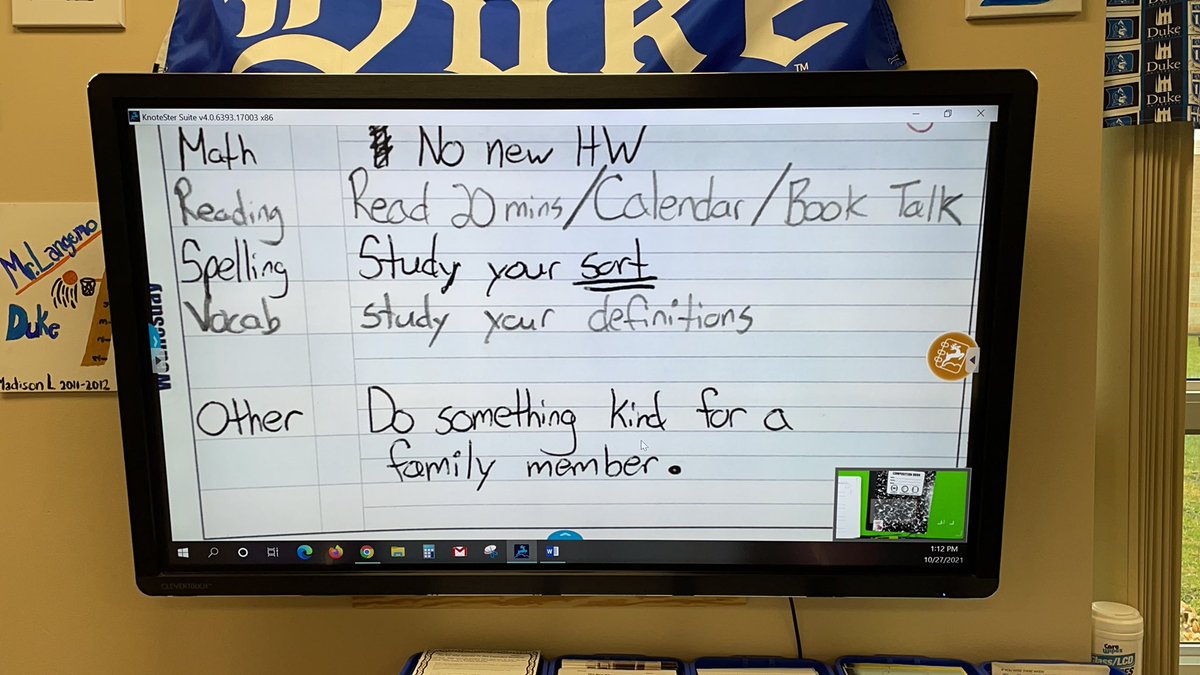 DUKE
TM
Duke
Duke
Duke
KnoteSter Suite v4.0.6393.17003 x86
Math No new HW
Reading Read 20 mins/Calendar/Book Talk
Spelling Study your sort
Vocab study your definitions
Other Do something kind for a
family member.
Wednesday
Mr. Langemo
Duke
Madison L 2011-2012
COMPOSITION BOOK
1:12 PM
10/27/2021
CLEVERTOUCH
Care
Wipes
Glass/LCD